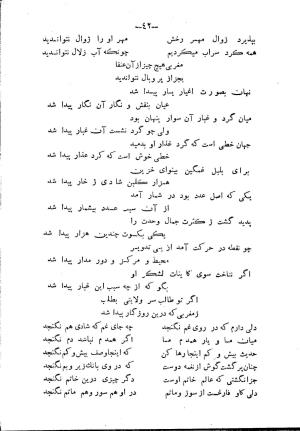 -۴۲-
بپذیرد زوال مهر رخش مهر او را زوال نتوانددید
همه گرد سراب میگردیم چونکه آب زلال نتوانددید
مغربی هیچ چیز از آن عنقا
بجز از پر و بال نتوانددید
نهان بصورت اغیار یار پیدا شد
عیان بنقش و نگار آن نگار پیدا شد
میان گرد و غبار آن سوار پنهان بود
ولی چو گرد نشست آن سوار پیدا شد
جهان خطی است که گرد عذار او بدمید
خطی خوش است که گرد عذار پیدا شد
برای بلبل غمگین بینوای حزین
هزار گلبن شادی ز خار پیدا شد
یکی که اصل عدد بود در شمار آمد
از آن سبب عدد بیشمار پیدا شد
پدید گشت ز کثرت جمال وحدت را
یکی بکسوت چندین هزار پیدا شد
چو نقطه در حرکت آمد از پی تدویر
محیط و مرکز و دور مدار پیدا شد
اگر نتاخت سوی کاینات لشکر او
بگو که از چه سبب این غبار پیدا شد
اگر تو طالب سر ولایتی بطلب
ز مغربی که درین روزگار پیدا شد
دلی دارم که در روی غم نگنجد چه جای غم که شادی هم نگنجد
میان ما و یار همدم ما اگر همدم نباشد دم نگنجد
حدیث بیش و کم اینجا رها کن که اینجا وصف بیش و کم نگنجد
چنان پر گشت گوش از نغمه دوست که در وی بانگ زیر و بم نگنجد
جز انگشتی که عالم خاتم اوست دگر چیزی درین خاتم نگنجد
دلی کاو فارغست از سوز و ماتم در او هم سور و هم ماتم نگنجد